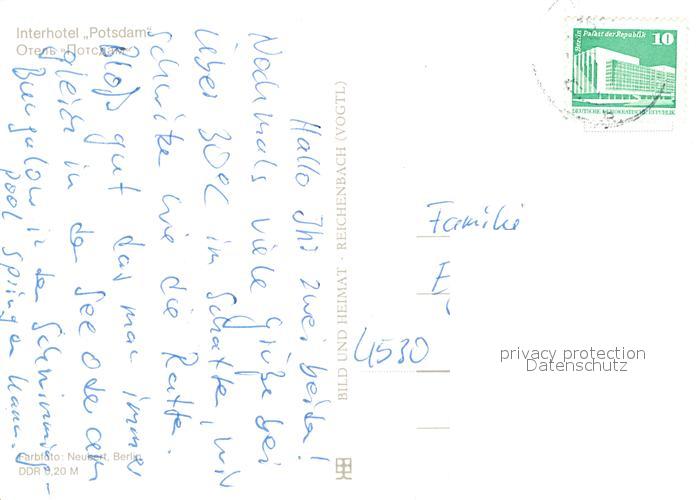 Interhotel „Potsdam“
Отель »Потсдам«
Hallo Ihr zwei beiden!
Nochmals viele Grüße bei
über 30°C im Schatten, wir
schwitzen wie die Ratten.
Bloß gut das man immer
gleich in den See oder am
Bungalow in den Schwimming-
pool springen kann.
Farbfoto: Neubert, Berlin
DDR 0,20 M
BILD UND HEIMAT · REICHENBACH (VOGTL)
Berlin Palast der Republik
10
DEUTSCHE DEMOKRATISCHE REPUBLIK
Familie
4530
privacy protection
Datenschutz